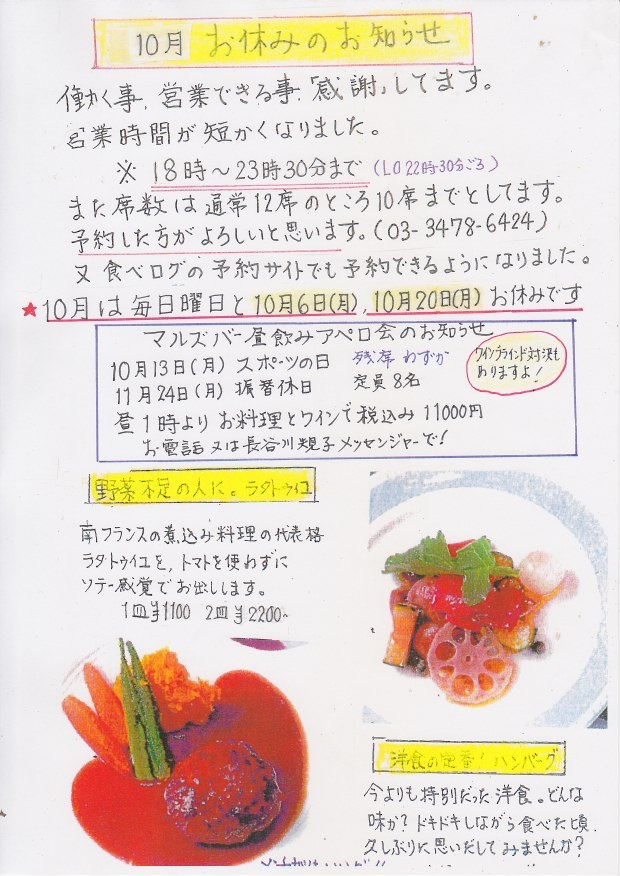 10月 お休みのお知らせ
働く事、営業できる事、「感謝」してます。
営業時間が短かくなりました。
※ 18時〜23時30分まで(LO22時30分ごろ)
また席数は通常12席のところ10席までとしてます。
予約した方がよろしいと思います。(03-3478-6424)
又食べログの予約サイトでも予約できるようになりました。
★10月は毎日曜日と10月6日(月)、10月20日(月)お休みです
マルズバー昼飲みアペロ会のお知らせ
10月13日(月) スポーツの日 残席わずか
11月24日(月) 振替休日 定員8名
ワインブラインド対決も
ありますよ!
昼1時よりお料理とワインで税込み11000円
お電話又は長谷川規子メッセンジャーで!
野菜不足の人に。ラタトゥイユ
南フランスの煮込み料理の代表格
ラタトゥイユを、トマトを使わずに
ソテー感覚でお出しします。
1皿¥1100 2皿¥2200-
洋食の定番!ハンバーグ
今よりも特別だった洋食。どんな
味か?ドキドキしながら食べた頃、
久しぶりに思いだしてみませんか?